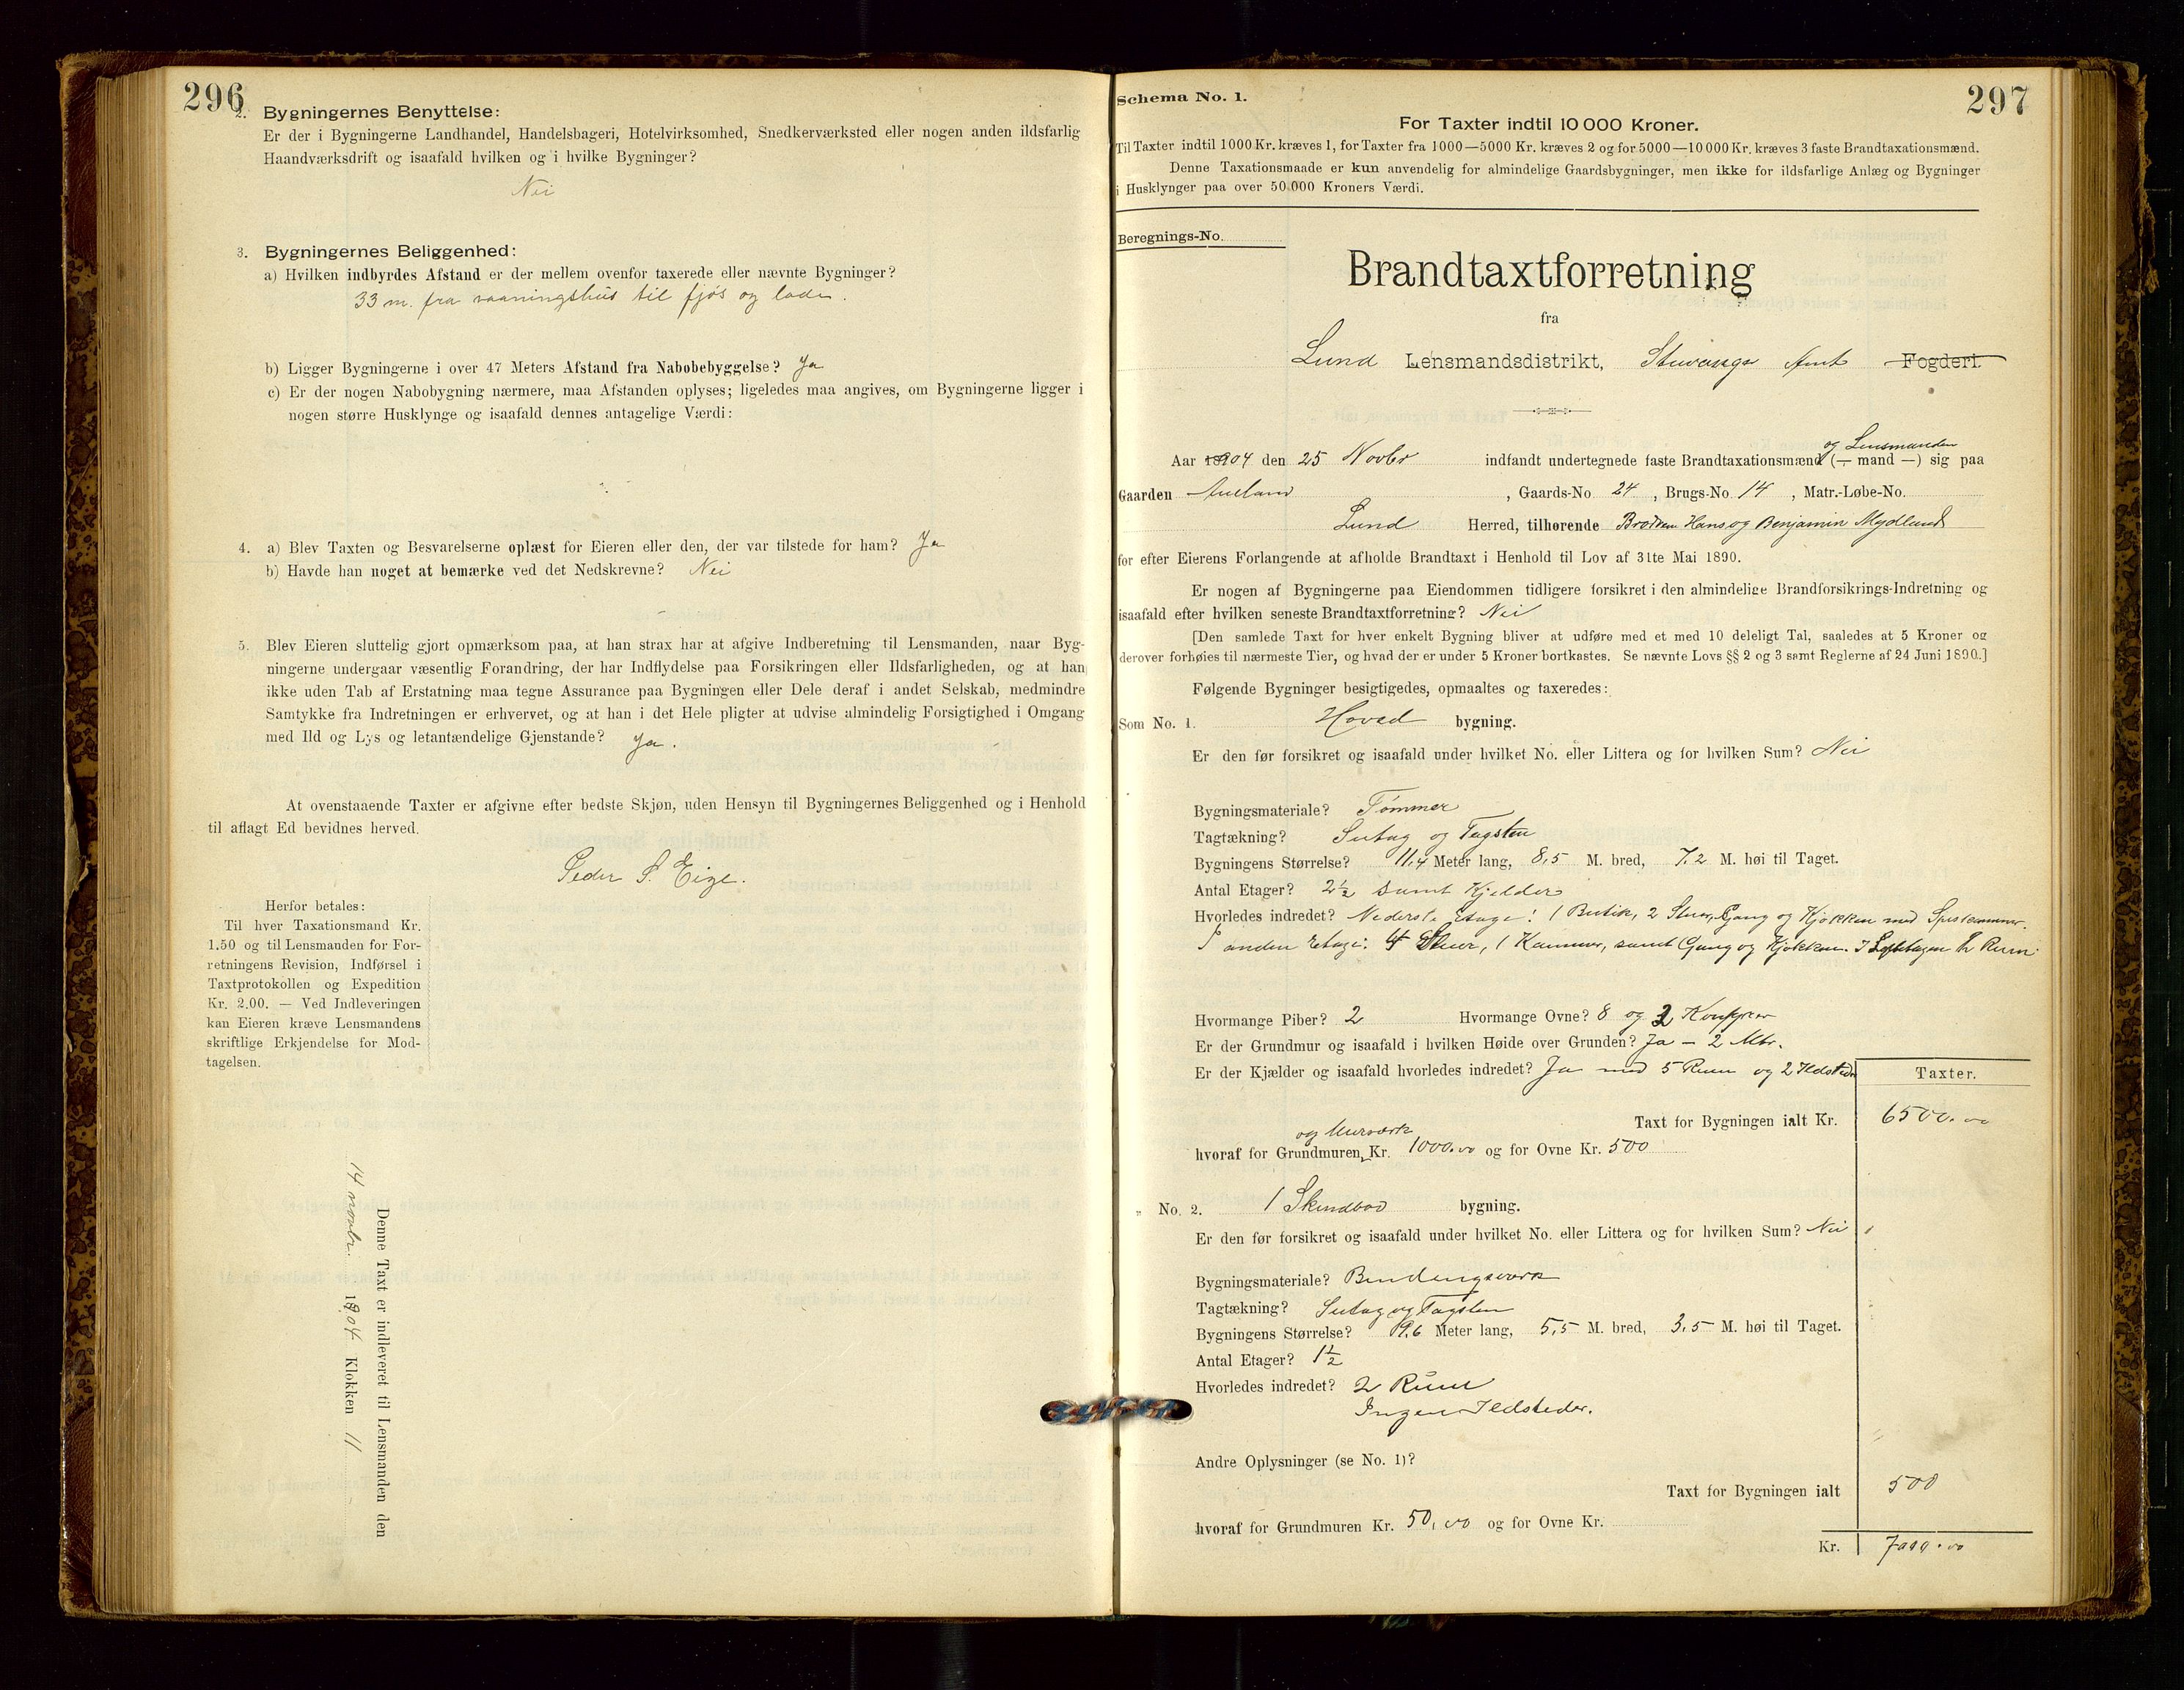 296
2. Bygningernes Benyttelse:
Er der i Bygningerne Landhandel, Handelsbageri, Hotelvirksomhed, Snedkerværksted eller nogen anden ildsfarlig
Haandværksdrift og isaafald hvilken og i hvilke Bygninger?
Nei
3. Bygningernes Beliggenhed:
a) Hvilken indbyrdes Afstand er der mellem ovenfor taxerede eller nævnte Bygninger?
33 m. fra vaaningshus til fjøs og lade.
b) Ligger Bygningerne i over 47 Meters Afstand fra Nabobebyggelse? Ja
c) Er der nogen Nabobygning nærmere, maa Afstanden oplyses; ligeledes maa angives, om Bygningerne ligger i
nogen større Husklynge og isaafald dennes antagelige Værdi:
4. a) Blev Taxten og Besvarelserne oplæst for Eieren eller den, der var tilstede for ham? Ja
b) Havde han noget at bemærke ved det Nedskrevne? Nei
5. Blev Eieren sluttelig gjort opmærksom paa, at han strax har at afgive Indberetning til Lensmanden, naar Byg-
ningerne undergaar væsentlig Forandring, der har Indflydelse paa Forsikringen eller Ildsfarligheden, og at han
ikke uden Tab af Erstatning maa tegne Assurance paa Bygningen eller Dele deraf i andet Selskab, medmindre
Samtykke fra Indretningen er erhvervet, og at han i det Hele pligter at udvise almindelig Forsigtighed i Omgang
med Ild og Lys og letantændelige Gjenstande? Ja.
At ovenstaaende Taxter er afgivne efter bedste Skjøn, uden Hensyn til Bygningernes Beliggenhed og i Henhold
til aflagt Ed bevidnes herved.
Peder S. Eige.
Herfor betales:
Til hver Taxationsmand Kr.
1.50 og til Lensmanden for For-
retningens Revision, Indførsel i
Taxtprotokollen og Expedition
Kr. 2.00. — Ved Indleveringen
kan Eieren kræve Lensmandens
skriftlige Erkjendelse for Mod-
tagelsen.
Denne Taxt er indleveret til Lensmanden den
14 novbr. 1904 Klokken 11
297
Schema No. 1.
For Taxter indtil 10 000 Kroner.
Til Taxter indtil 1000 Kr. kræves 1, for Taxter fra 1000—5000 Kr. kræves 2 og for 5000—10000 Kr. kræves 3 faste Brandtaxationsmænd.
Denne Taxationsmaade er kun anvendelig for almindelige Gaardsbygninger, men ikke for ildsfarlige Anlæg og Bygninger
i Husklynger paa over 50.000 Kroners Værdi.
Beregnings-No.
Brandtaxtforretning
fra
Lund Lensmandsdistrikt, Stavanger Amt Fogderi.
og Lensmanden
Aar 1904 den 25 Novbr indfandt undertegnede faste Brandtaxationsmænd (— mand —) sig paa
Gaarden , Gaards-No 24, Brugs-No. 14, Matr.-Løbe-No.
Lund Herred, tilhørende Brødrene Hans og Benjamin Mydland
for efter Eierens Forlangende at afholde Brandtaxt i Henhold til Lov af 31te Mai 1890.
Er nogen af Bygningerne paa Eiendommen tidligere forsikret i den almindelige Brandforsikrings-Indretning og
isaafald efter hvilken seneste Brandtaxtforretning? Nei
[Den samlede Taxt for hver enkelt Bygning bliver at udføre med et med 10 deleligt Tal, saaledes at 5 Kroner og
derover forhøies til nærmeste Tier, og hvad der er under 5 Kroner bortkastes. Se nævnte Lovs §§ 2 og 3 samt Reglerne af 24 Juni 1890.]
Følgende Bygninger besigtigedes, opmaaltes og taxeredes:
Som No. 1. Hoved bygning.
Er den før forsikret og isaafald under hvilket No. eller Littera og for hvilken Sum? Nei
Bygningsmateriale? Tømmer
Tagtækning? Sutag og Tagsten
Bygningens Størrelse? 11,4 Meter lang, 8,5 M. bred, 7.2 M. høi til Taget.
Antal Etager? 2½ samt Kjelder
Hvorledes indredet? Nederste etage: 1 Butik, 2 Stuer, Gang og Kjøkken med Spiskammer.
I anden etage: 4 Stuer, 1 Kammer, samt Gang og Kjøkken. I Loftetagen Rum
Hvormange Piber? 2 Hvormange Ovne? 8 og 2 Komfyrer
Er der Grundmur og isaafald i hvilken Høide over Grunden? Ja — 2 Mtr.
Er der Kjælder og isaafald hvorledes indredet? Ja med 5 Rum og 2 Ildsteder
Taxter.
Taxt for Bygningen ialt Kr. 6500.00
og Murværk
hvoraf for Grundmuren, Kr. 1000.00 og for Ovne Kr. 500
„ No. 2. 1 Skindbod bygning.
Er den før forsikret og isaafald under hvilket No. eller Littera og for hvilken Sum? Nei
Bygningsmateriale? Bindingsverk
Tagtækning? Sutag og Tagsten
Bygningens Størrelse? 9.6 Meter lang, 5,5 M. bred, 3,5 M. høi til Taget.
Antal Etager? 1½
Hvorledes indredet? 2 Rum
Ingen Ildsteder.
Andre Oplysninger (se No. 1)?
Taxt for Bygningen ialt 500
hvoraf for Grundmuren Kr. 50,00 og for Ovne Kr.
Kr. 7000.00